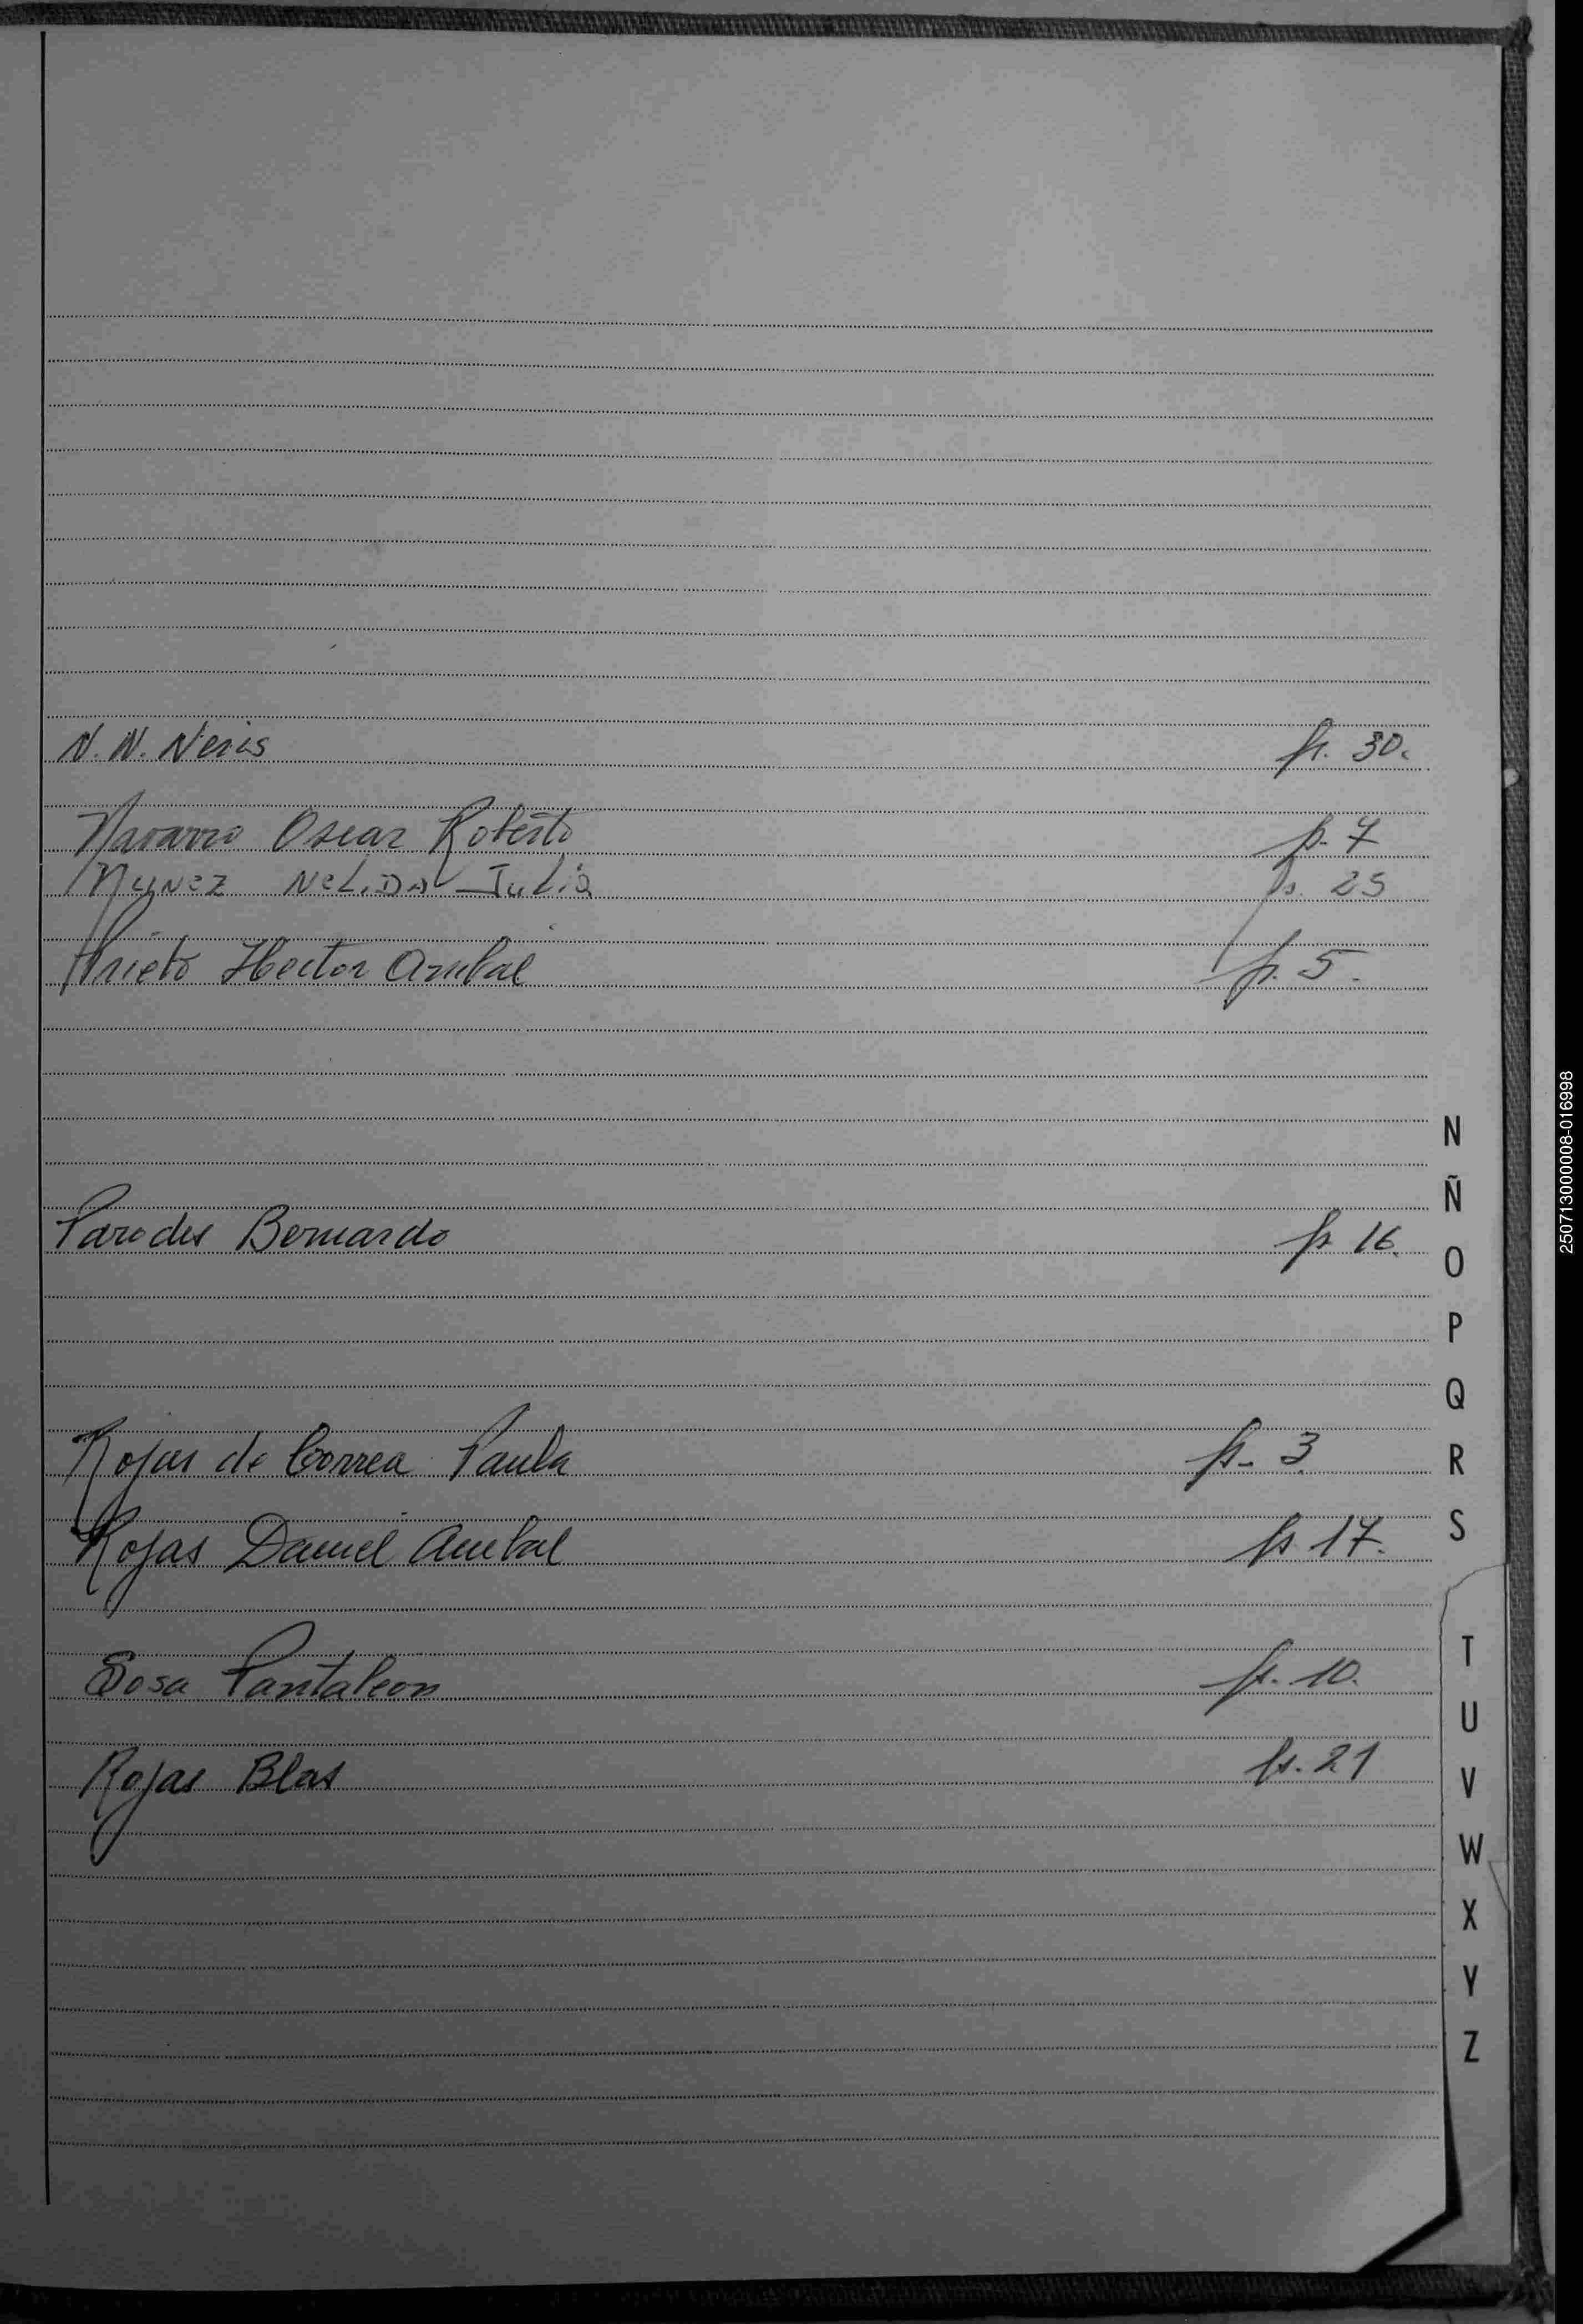 N. N. Neris fs. 30.
Navarro Oscar Roberto fs. 7
Nuñez NeLiDa Julia fs. 25
Prieto Hector Anibal fs. 5.
N
Ñ
Paredes Bernardo fs 16.
O
P
Q
Rojas de Correa Paula fs. 3
R
Rojas Daniel Anibal fs 17.
S
Sosa Pantaleon fs. 10.
T
U
Rojas Blas fs. 21
V
W
X
Y
Z
2507130000008-016998